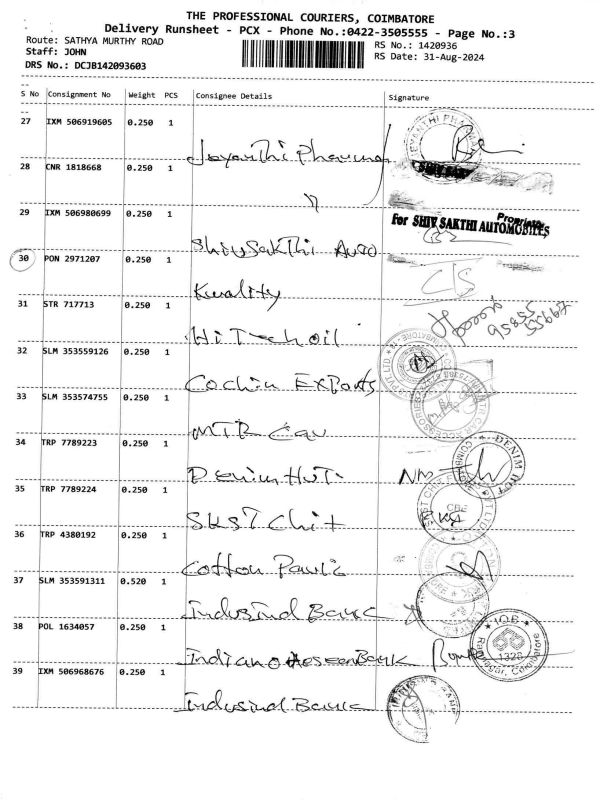 THE PROFESSIONAL COURIERS, COIMBATORE
Delivery Runsheet - PCX - Phone No.:0422-3505555 - Page No.:3
Route: SATHYA MURTHY ROAD
RS No.: 1420936
Staff: JOHN
RS Date: 31-Aug-2024
DRS No.: DCJB142093603
S No Consignment No Weight PCS Consignee Details Signature
27 IXM 506919605 0.250 1
Jeyanthi Pharma
28 CNR 1818668 0.250 1
29 IXM 506980699 0.250 1
For SHIV SAKTHI AUTOMOBILES
Proprietor
ShivSakthi Auto
30 PON 2971207 0.250 1
Kwality
31 STR 717713 0.250 1
Hi Tech oil
32 SLM 353559126 0.250 1
Cochin Exports
33 SLM 353574755 0.250 1
MTR Cav
34 TRP 7789223 0.250 1
Denim Hut
DENIM HUT
35 TRP 7789224 0.250 1
SKST Chit
36 TRP 4380192 0.250 1
Cotton
37 SLM 353591311 0.520 1
Indusind Bank
38 POL 1634057 0.250 1
IOB
1328
Coimbatore
Indian Oversean Bank
39 IXM 506968676 0.250 1
Indusind Bank